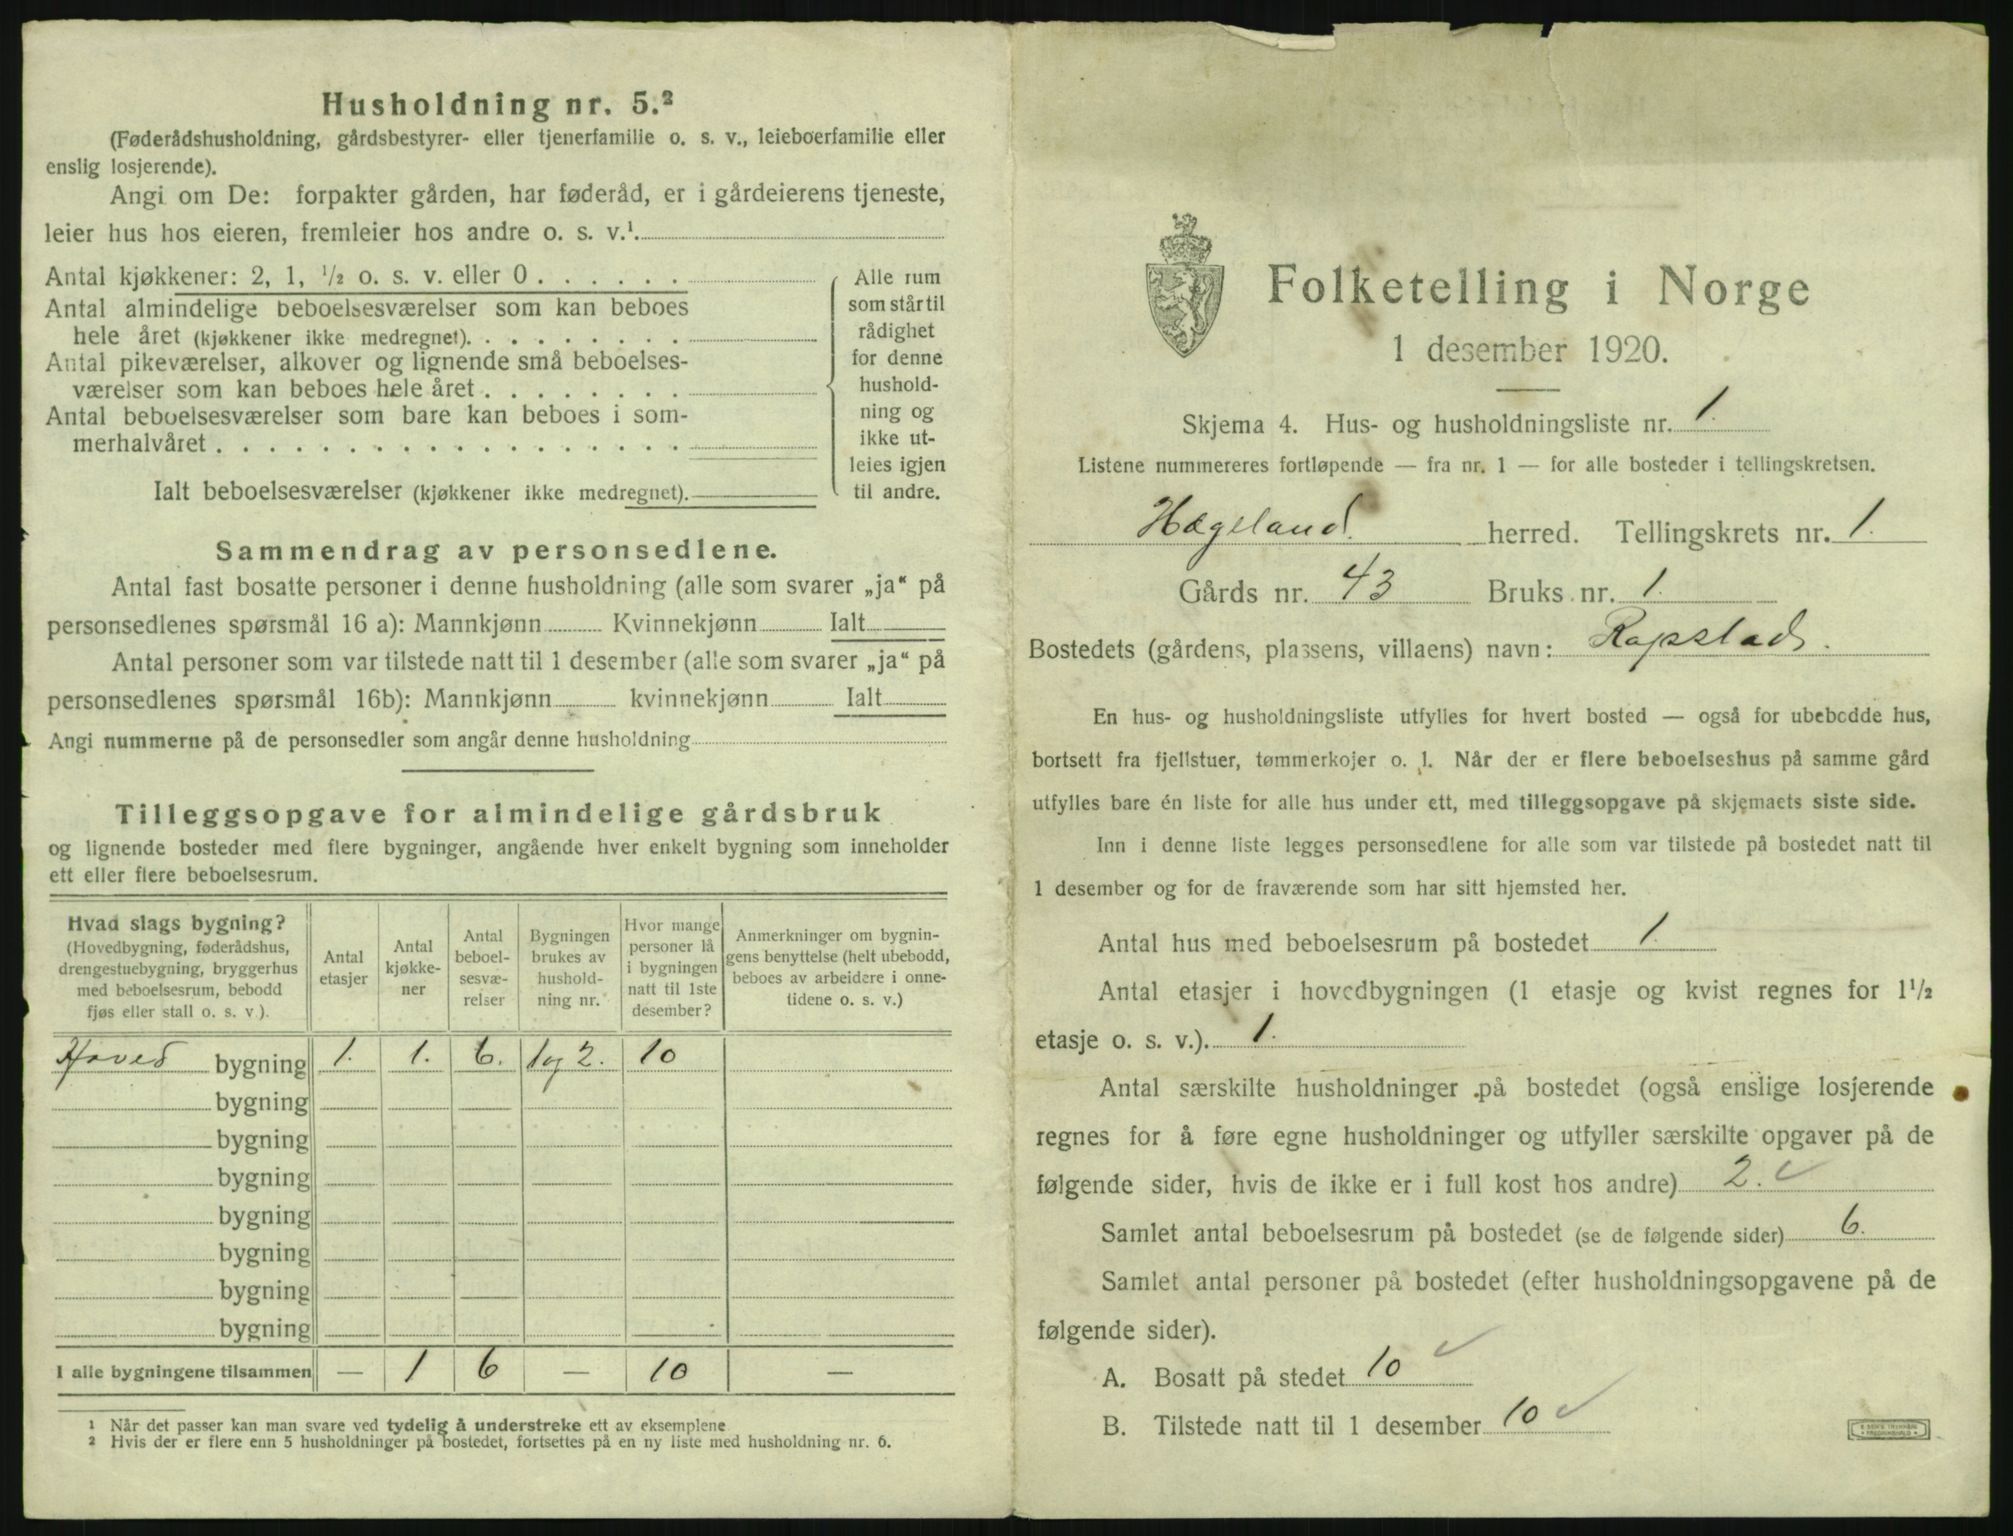 Husholdning nr. 5.²
(Føderådshusholdning, gårdsbestyrer- eller tjenerfamilie o. s. v., leieboerfamilie eller
enslig losjerende).
Angi om De: forpakter gården, har føderåd, er i gårdeierens tjeneste,
leier hus hos eieren, fremleier hos andre o. s. v.¹.
Antal kjøkkener: 2, 1, ½ o. s. v. eller 0
Antal almindelige beboelsesværelser som kan beboes
hele året (kjøkkener ikke medregnet).
Antal pikeværelser, alkover og lignende små beboelses-
værelser som kan beboes hele året
Antal beboelsesværelser som bare kan beboes i som-
merhalvåret
Ialt beboelsesværelser (kjøkkener ikke medregnet).
Alle rum
som står til
rådighet
for denne
hushold-
ning og
ikke ut-
leies igjen
til andre.
Sammendrag av personsedlene.
Antal fast bosatte personer i denne husholdning (alle som svarer „ja“ på
personsedlenes spørsmål 16 a): Mannkjønn Kvinnekjønn Ialt
Antal personer som var tilstede natt til 1 desember (alle som svarer „ja“ på
personsedlenes spørsmål 16b): Mannkjønn kvinnekjønn Ialt
Angi nummerne på de personsedler som angår denne husholdning
Tilleggsopgave for almindelige gårdsbruk
og lignende bosteder med flere bygninger, angående hver enkelt bygning som inneholder
ett eller flere beboelsesrum.
Hvad slags bygning?
(Hovedbygning, føderådshus,
drengestuebygning, bryggerhus
med beboelsesrum, bebodd
fjøs eller stall o. s. v.).
Antal
etasjer
Antal
kjøkke-
ner
Antal
beboel-
sesvæ-
relser
Bygningen
brukes av
hushold-
ning nr.
Hvor mange
personer lå
i bygningen
natt til 1ste
desember?
Anmerkninger om bygnin-
gens benyttelse (helt ubebodd,
beboes av arbeidere i onne-
tidene o. s. v.)
Hoved bygning 1. 1. 6. 1 og 2. 10
bygning
bygning
bygning
bygning
bygning
bygning
bygning
I alle bygningene tilsammen — 1 6 — 10 —
¹ Når det passer kan man svare ved tydelig å understreke ett av eksemplene
² Hvis der er flere enn 5 husholdninger på bostedet, fortsettes på en ny liste med husholdning nr. 6.
Folketelling i Norge
1 desember 1920.
Skjema 4. Hus- og husholdningsliste nr. 1.
Listene nummereres fortløpende — fra nr. 1 — for alle bosteder i tellingskretsen.
Hægeland. herred. Tellingskrets nr. 1.
Gårds nr. 43 Bruks nr. 1.
Bostedets (gårdens, plassens, villaens) navn: Rapstad.
En hus- og husholdningsliste utfylles for hvert bosted — også for ubebodde hus,
bortsett fra fjellstuer, tømmerkojer o. l. Når der er flere beboelseshus på samme gård
utfylles bare én liste for alle hus under ett, med tilleggsopgave på skjemaets siste side.
Inn i denne liste legges personsedlene for alle som var tilstede på bostedet natt til
1 desember og for de fraværende som har sitt hjemsted her.
Antal hus med beboelsesrum på bostedet 1.
Antal etasjer i hovedbygningen (1 etasje og kvist regnes for 1½
etasje o. s. v.). 1.
Antal særskilte husholdninger på bostedet (også enslige losjerende
regnes for å føre egne husholdninger og utfyller særskilte opgaver på de
følgende sider, hvis de ikke er i full kost hos andre) 2. ✓
Samlet antal beboelsesrum på bostedet (se de følgende sider) 6.
Samlet antal personer på bostedet (efter husholdningsopgavene på de
følgende sider).
A. Bosatt på stedet 10 ✓
B. Tilstede natt til 1 desember 10 ✓